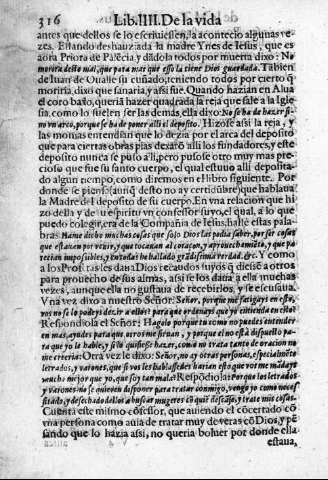 316 Lib.IIII. De la vida
antes que dellos se lo escriuiessen, la acontecio algunas ve-
zes. Estando deshauziada la madre Ynes de Iesus, que es
aora Priora de Palẽcia y dãdola todos por muerta dixo: No
morira deste mal, que para mas que esso la tiene Dios guardada. Tãbien
de Iuan de Oualle su cuñado, teniendo todos por cierto q̃
moriria, dixo que sanaria, y assi fue. Quando hazian en Alua
el coro baxo, queriã hazer quadrada la reja que sale a la Igle
sia, como lo suelen ser las demas, ella dixo: No se ha de hazer si-
no vn arco, porque se ha de poner alli el deposito. Hizose assi la reja, y
las monjas entendiã que lo dezia por el arca del deposito
que para ciertas obras pias dexarõ alli los fundadores, y este
deposito nunca se puso alli, pero pusose otro muy mas pre-
cioso que fue su santo cuerpo, el qual estuuo alli deposita-
do algun tiempo, como diremos en el libro siguiente. Por
donde se piensa (aunq̃ desto no ay certidũbre) que hablaua
la Madre del deposito de su cuerpo. En vna relacion que hi
zo della y de su espiritu vn confessor suyo, el qual, a lo que
puedo colegir, era de la Compañia de Iesus, hallè estas pala-
bras: Hame dicho muchas cosas que solo Dios las podia saber, por ser cosas
que estauan por venir, y que tocauan al coraçon, y aprouechamiẽto, y que pa
recian impossibles, y en todas he hallado grãdissima verdad. &c. Y como
a los Profetas les daua Dios recaudos suyos q̃ diesse a otros
para prouecho de sus almas, assi se los daua a ella muchas
vezes, aunque ella no gustaua de recebirlos, y se escusaua.
Y na vez dixo a nuestro Señor: Señor, porque me fatigays en esto,
vos no se lo podeys dezir a ellos? para que ordenays que yo entienda en esto?
Respondiola el Señor: Hagolo porque tu como no puedes entender
en mas, ayudes para que otros me siruan, y porque el no està dispuesto pa-
ra que yo le hable, y si lo quisiesse hazer, como no trata tanto de oracion no
me creeria: Otra vez le dixo: Señor, no ay otras personas, especialmẽte
letrados, y varones, que si vos les hablassedes harian esto que vos me mãdays
mucho mejor que yo, que soy tan mala? Respõdiola: Porque los letrados
y varones no se quieren disponer para tratar conmigo, vengo yo como neces
sitado, y desechado dellos a buscar mugeres cõ quiẽ descãse, y trate mis cosas.
Cuenta este mismo cõfessor, que auiendo el cõcertado cõ
vna persona como auia de tratar muy de veras cõ Dios, y pẽ
sando que lo hazia assi, no queria boluer por donde ella
estaua,